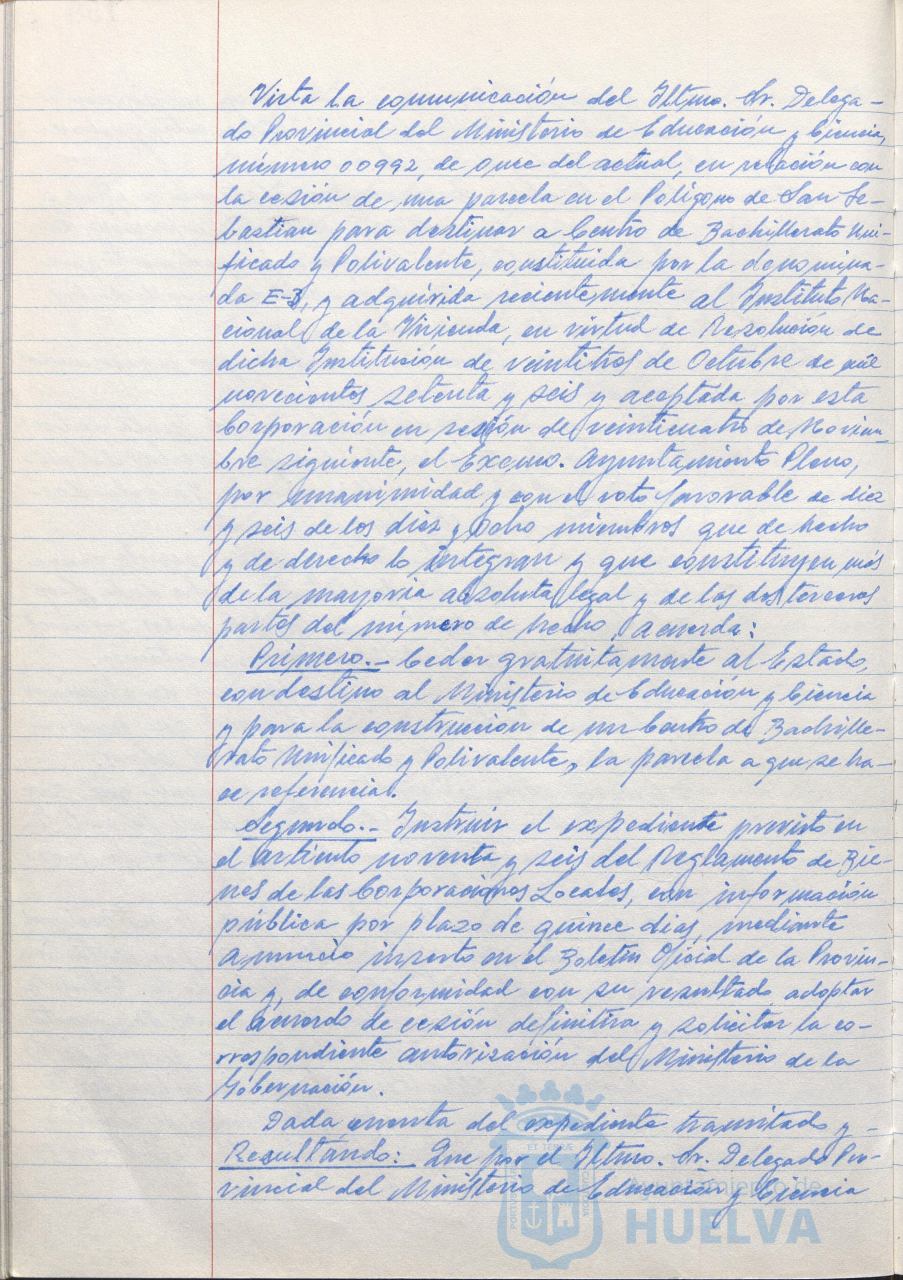 Vista la comunicación del Iltmo. Sr. Delega-
do Provincial del Ministerio de Educación y Ciencia,
número 00992, de once del actual, en relación con
la cesión de una parcela en el Polígono de San Se-
bastian para destinar a Centro de Bachillerato Uni-
ficado y Polivalente, constituida por la denomina-
da E-3, y adquirida recientemente al Instituto Na-
cional de la Vivienda, en virtud de Resolución de
dicha Institución de veintitros de Octubre de mil
novecientos setenta y seis y aceptada por esta
Corporación en sesión de veinticuatro de Noviem-
bre siguiente, el Excmo. Ayuntamiento Pleno,
por unanimidad y con el voto favorable de diez
y seis de los diez y ocho miembros que de hecho
y de derecho lo integran y que constituyen más
de la mayoría absoluta legal y de las dos terceras
partes del número de hecho, acuerda:
Primero.- Ceder gratuitamente al Estado,
con destino al Ministerio de Educación y Ciencia
y para la construcción de un Centro de Bachille-
rato Unificado y Polivalente, la parcela a que se ha-
ce referencia.
Segundo.- Instruir el expediente previsto en
el artículo noventa y seis del Reglamento de Bie-
nes de las Corporaciones Locales, con información
pública por plazo de quince dias, mediante
anuncio inserto en el Boletin Oficial de la Provin-
cia y, de conformidad con su resultado adoptar
el acuerdo de cesión definitiva y solicitar la co-
rrespondiente autorización del Ministerio de la
Gobernación.
Dada cuenta del expediente tramitado y-
Resultando: Que por el Iltmo. Sr. Delegado Pro-
vincial del Ministerio de Educación y Ciencia
Ayuntamiento de
HUELVA